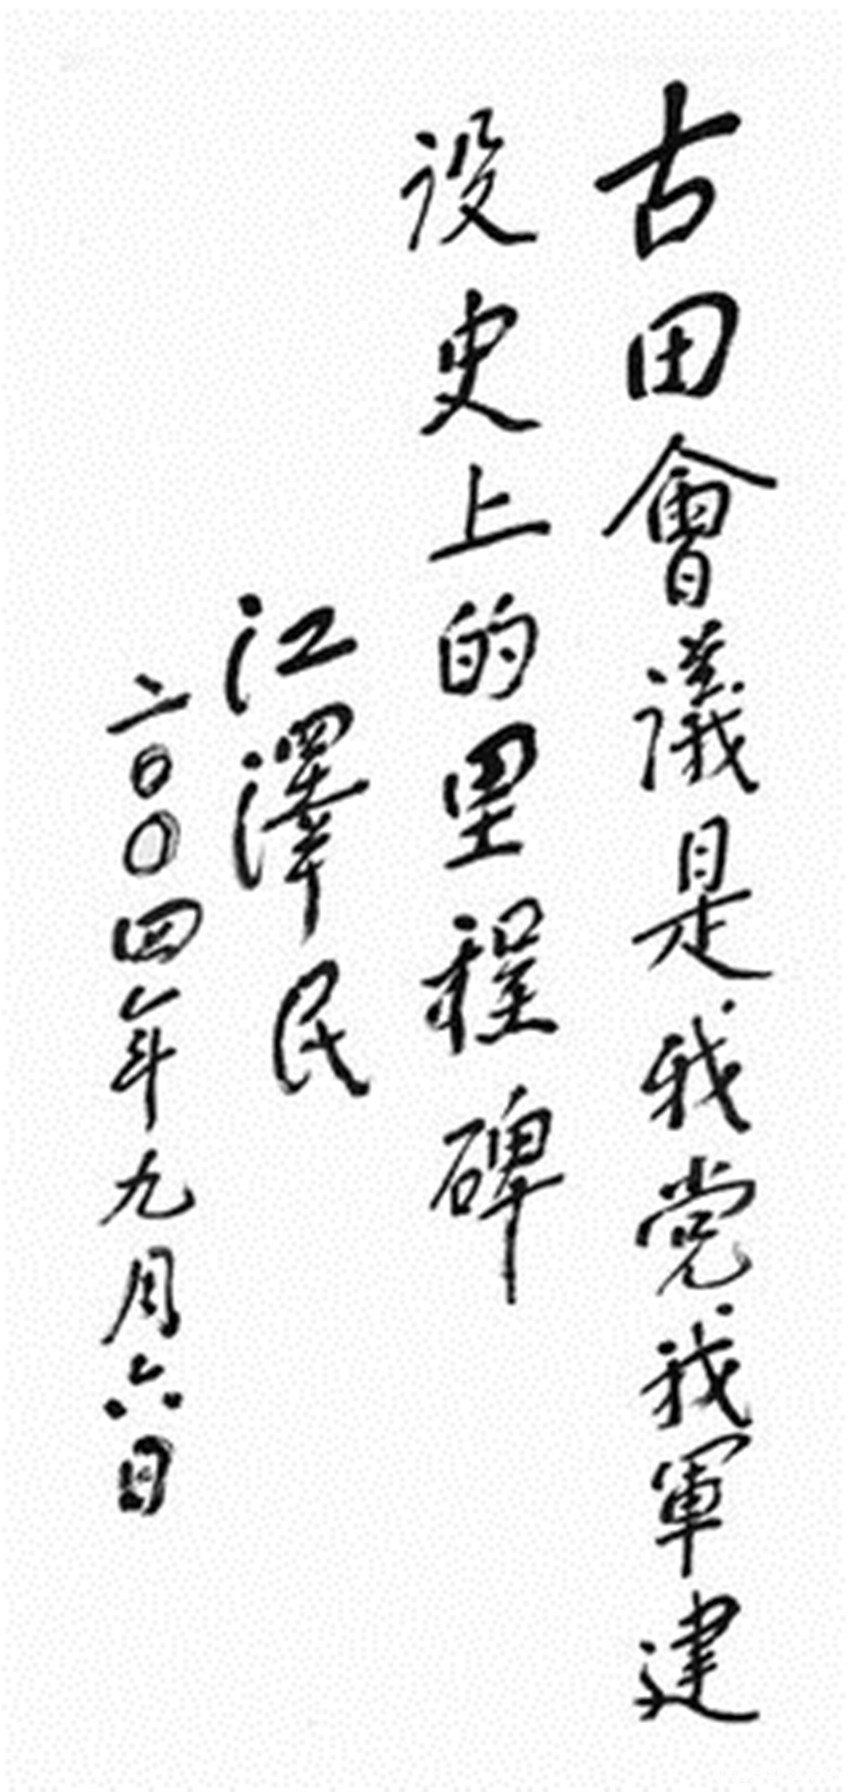 古田會議是我党我軍建
设史上的里程碑
江澤民
二00四年九月六日